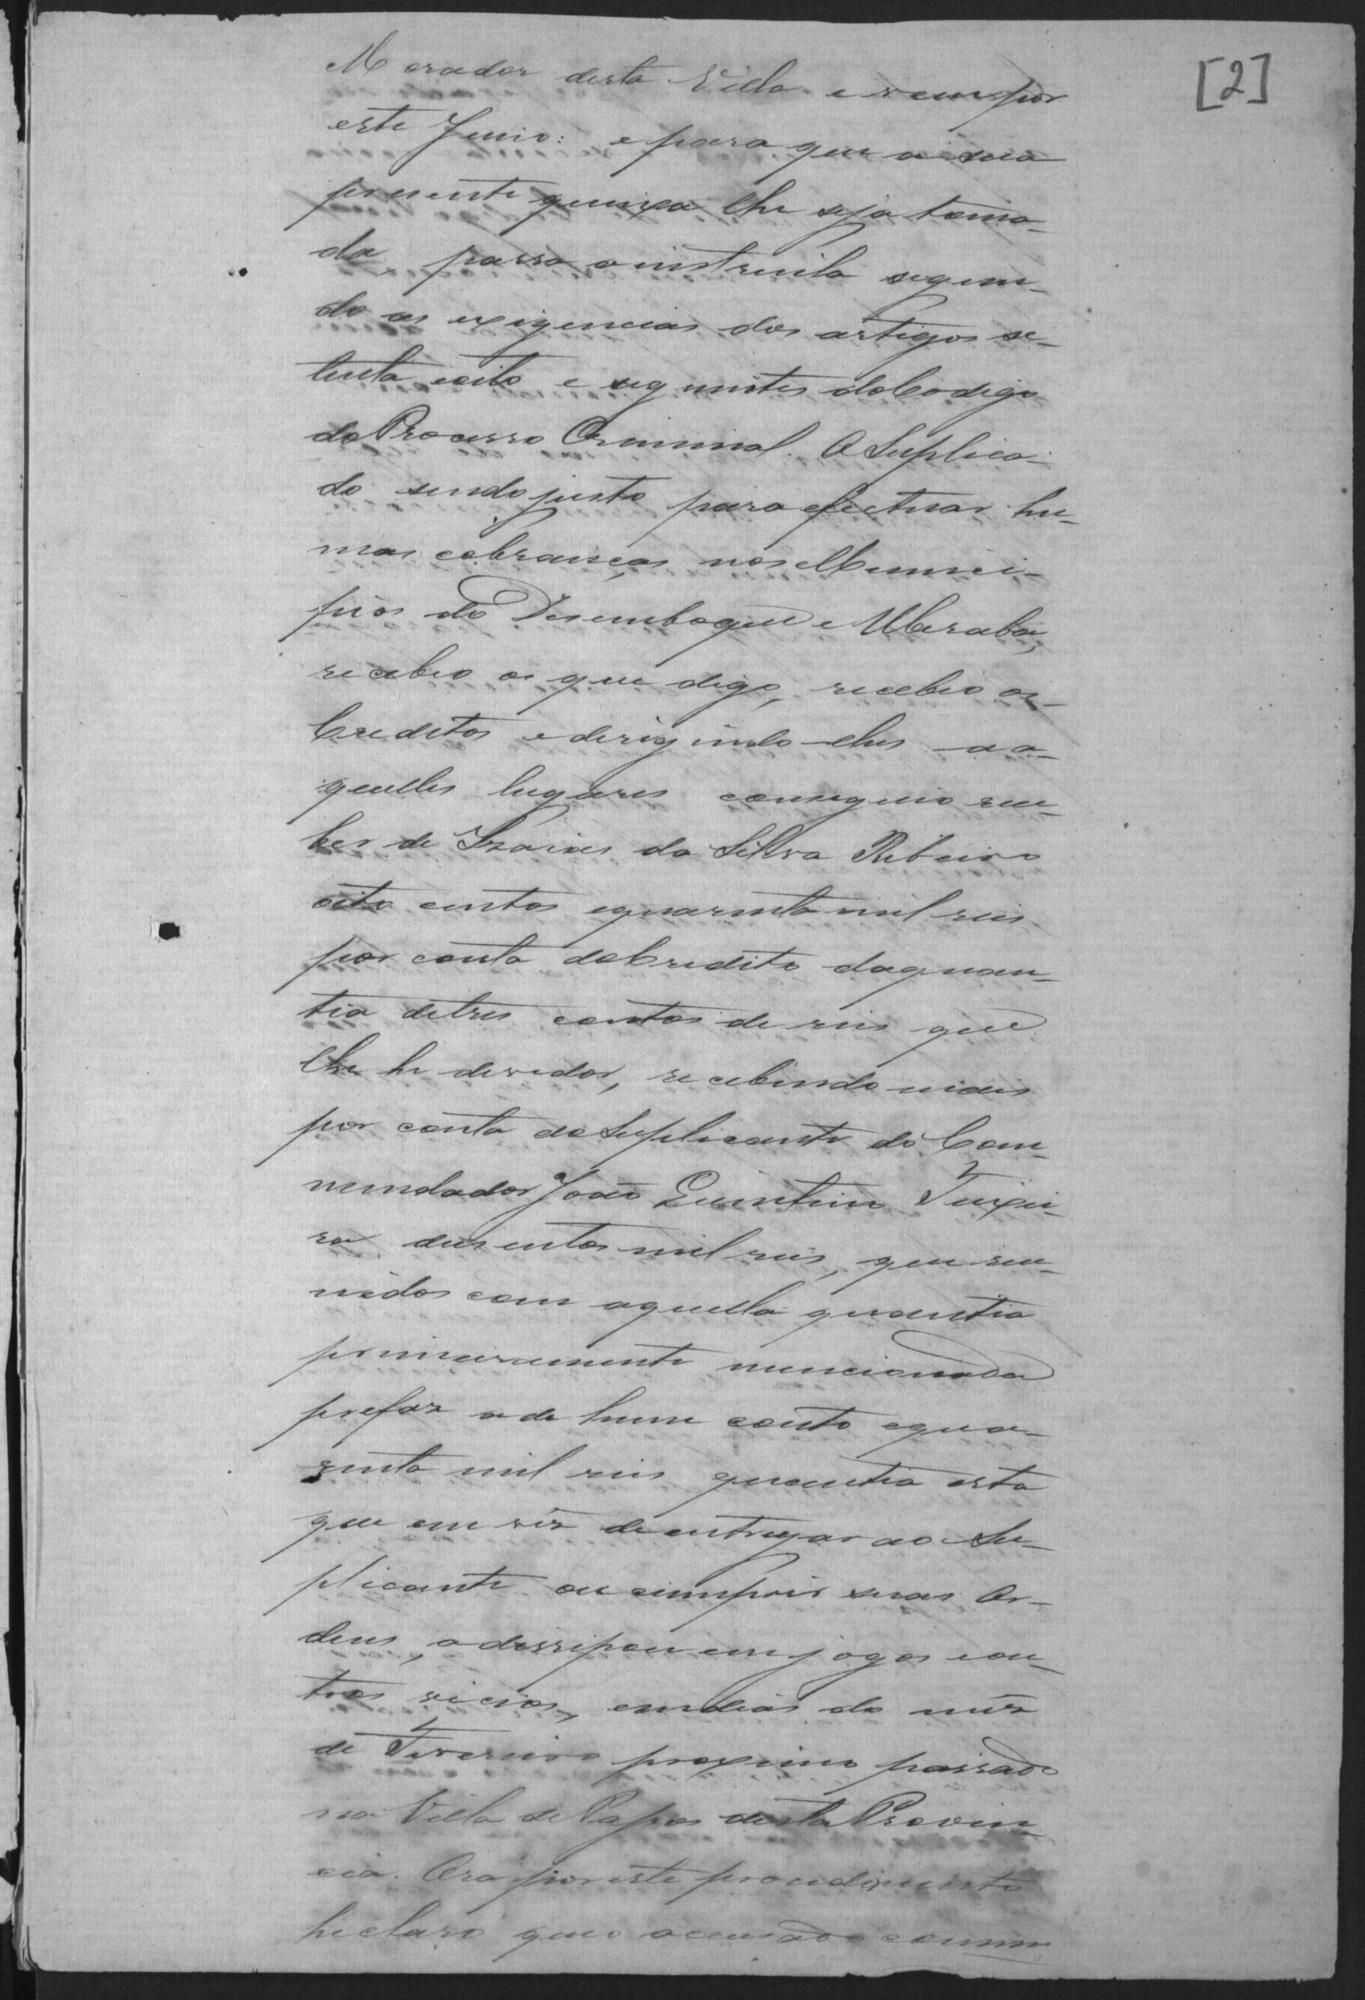 [2]
Morador desta Villa e vem por
este Juizo: e para que a sua
presente queixa lhe seja toma-
da passa a instruila segun-
do as exigencias dos artigos se-
tenta eoito e seguintes do Codigo
do Processo Criminal. O Suplica-
do sendo justo para efectuar hu-
mas cobranças nos Munici-
pios do Desemboque e Uberaba,
recebeo os que digo, recebeo os
Creditos e derigindo-lhes aa-
quelles lugares conseguio rece-
ber de Izaias da Silva Ribeiro
oito centos equarenta mil reis
por conta do Credito daquan-
tia detres contos de reis que
lhe he devedor, recebendo mais
por conta do Suplicante do Com-
mendador João Quintino Teixei-
ra dusentos mil reis, que reu-
nidos com aquella quantia
primeiramente mencionada
prefaz a de hum conto equa-
renta mil reis quantia esta
que em vêz de entregar ao Su-
plicante ou cumprir suas Or-
dens, a dessipou em jogos eou-
tros vicios, em dias do mêz
de Fevereiro proximo passado
na Villa de Passos desta Provin-
cia. Ora por este procedimento
he claro que o accusado comm